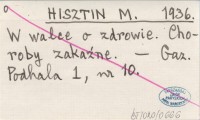 HISZTIN M. 1936.
W walce o zdrowie. Cho-
roby zakaźne. — Gaz.
Podhala 1, nr 10.